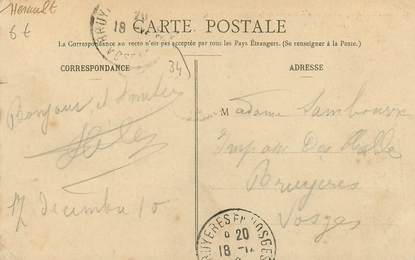 Herault
6 €
CARTE POSTALE
La Correspondance au recto n'est pas acceptée par tous les Pays Étrangers. (Se renseigner à la Poste.)
CORRESPONDANCE
ADRESSE
34
Bonjour et
17 décembre 10
Madame
Impasse Des
Bruyères
Vosges
BRUY
20
18
BRUYERES EN VOSGES
8 20
18